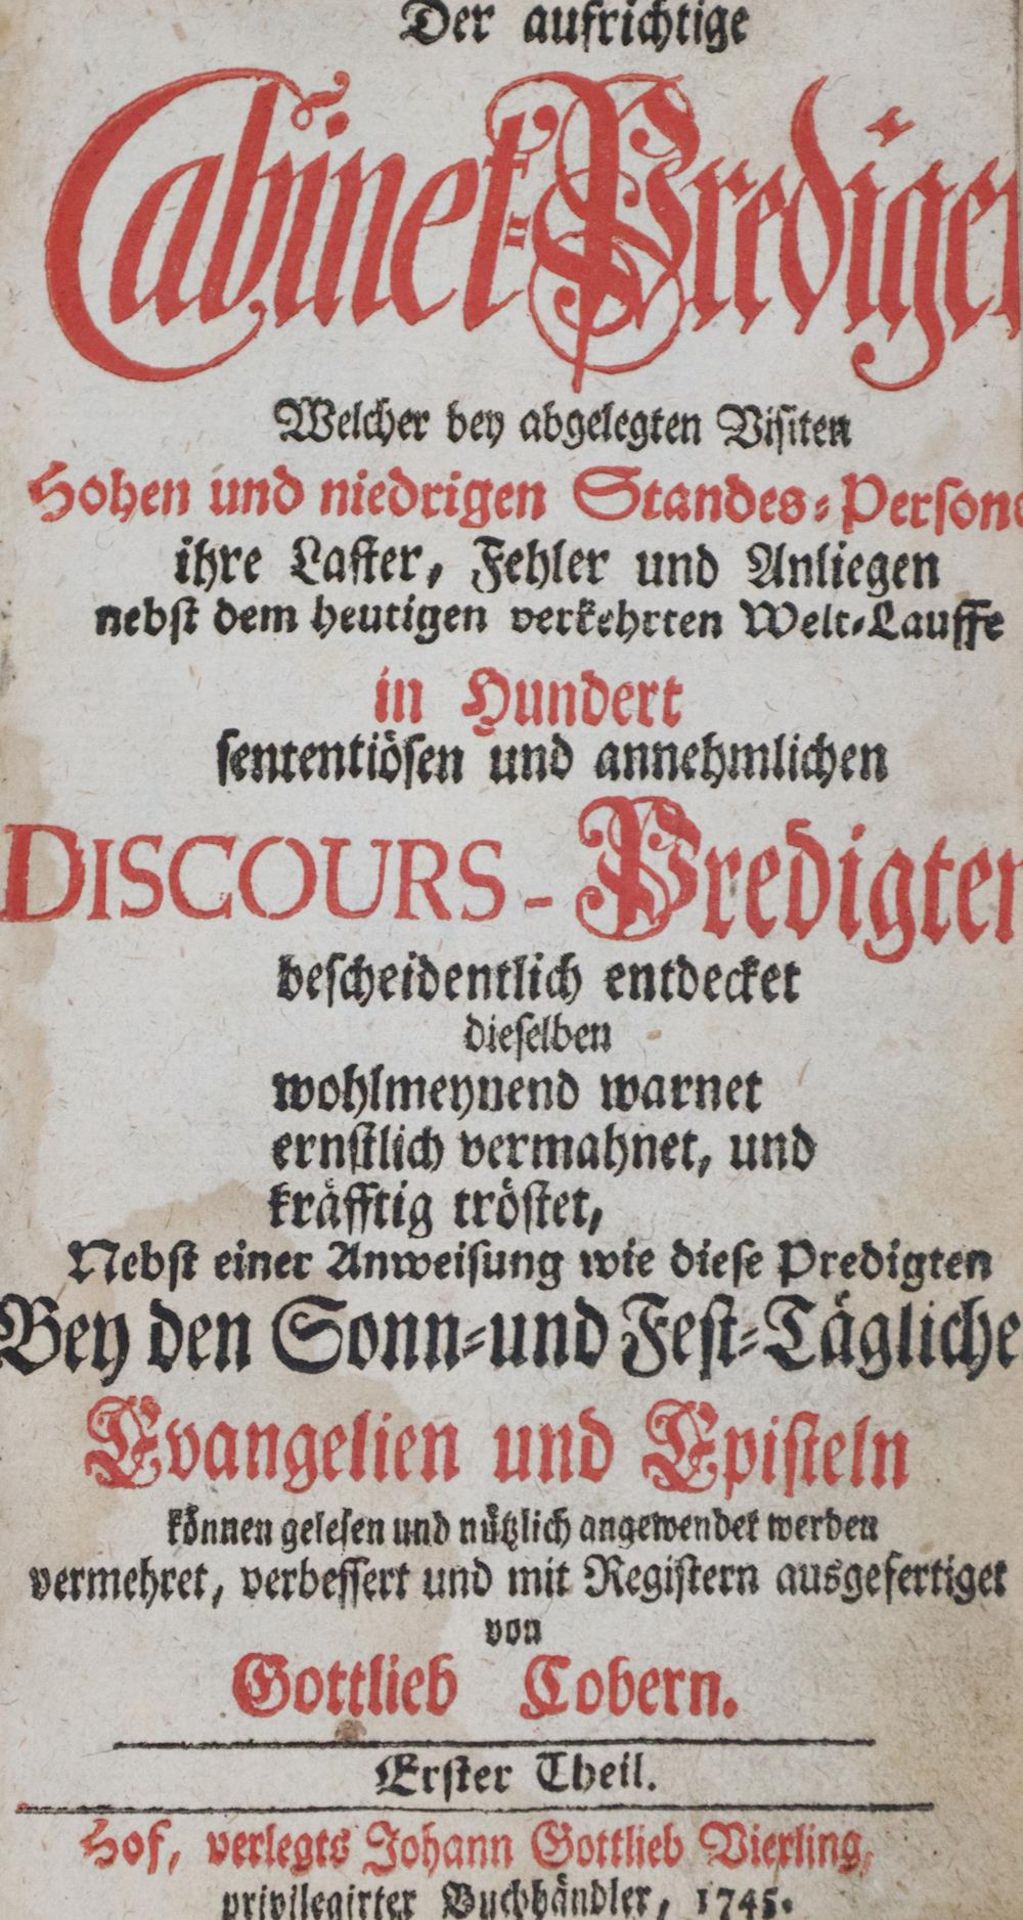 Der aufrichtige
Cabinet-Prediger
Welcher bey abgelegten Visiten
Hohen und niedrigen Standes-Persone
ihre Laster, Fehler und Anliegen
nebst dem heutigen verkehrten Welt-Lauffe
in Hundert
sententiösen und annehmlichen
DISCOURS-Predigten
bescheidentlich entdecket
dieselben
wohlmeynend warnet
ernstlich vermahnet, und
kräfftig tröstet,
Nebst einer Anweisung wie diese Predigten
Bey den Sonn-und Fest-Tägliche
Evangelien und Episteln
können gelesen und nützlich angewendet werden
vermehret, verbessert und mit Registern ausgefertiget
von
Gottlieb Cobern.
Erster Theil.
Hof, verlegts Johann Gottlieb Vierling,
privilegirter Buchhändler, 1745.